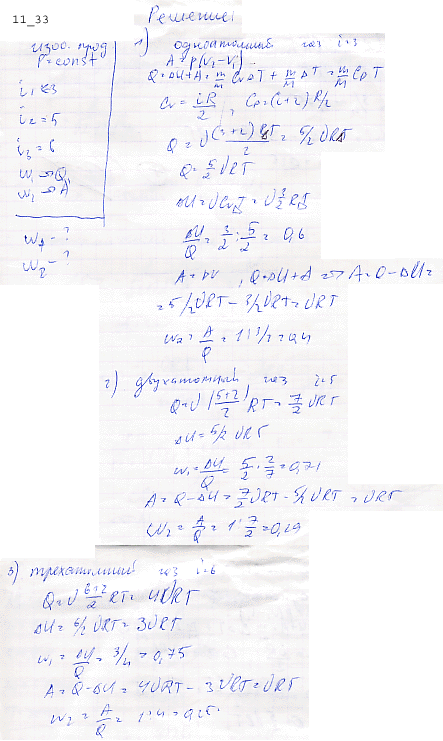 11_33
Решение:
изоб. проц
P=const
i₁=3
i₂=5
i₃=6
w₁→Q,
w₂→A
w₁-?
w₂-?
1) одноатомный газ i=3
A=p(V₂-V₁)
Q=ΔU+A= m/M CᵥΔT + m/M ΔT = m/M Cₚ T
Cᵥ= iR/2, Cₚ=(i+2)R/2
Q=υ(3+2)RT/2 = 5/2 υRT
Q= 5/2 υRT
ΔU=υCᵥT=υ 3/2 RT
ΔU/Q = 3/2 : 5/2 = 0,6
A=pV, Q=ΔU+A => A=Q-ΔU=
=5/2υRT-3/2υRT=υRT
w₂= A/Q =1:5/2=0,4
2) двухатомный газ i=5
Q=υ(5+2/2)RT= 7/2 υRT
ΔU=5/2 υRT
w₁= ΔU/Q = 5/2 · 2/7 =0,71
A=Q-ΔU= 7/2 υRT-5/2 υRT=υRT
W₂= A/Q =1: 7/2 =0,29
3) трехатомный газ i=6
Q=υ 6+2/2 RT=4υRT
ΔU=6/2 υRT=3υRT
w₁= ΔU/Q =3/4=0,75
A=Q-ΔU=4υRT-3υRT=υRT
w₂= A/Q =1:4=0,25.